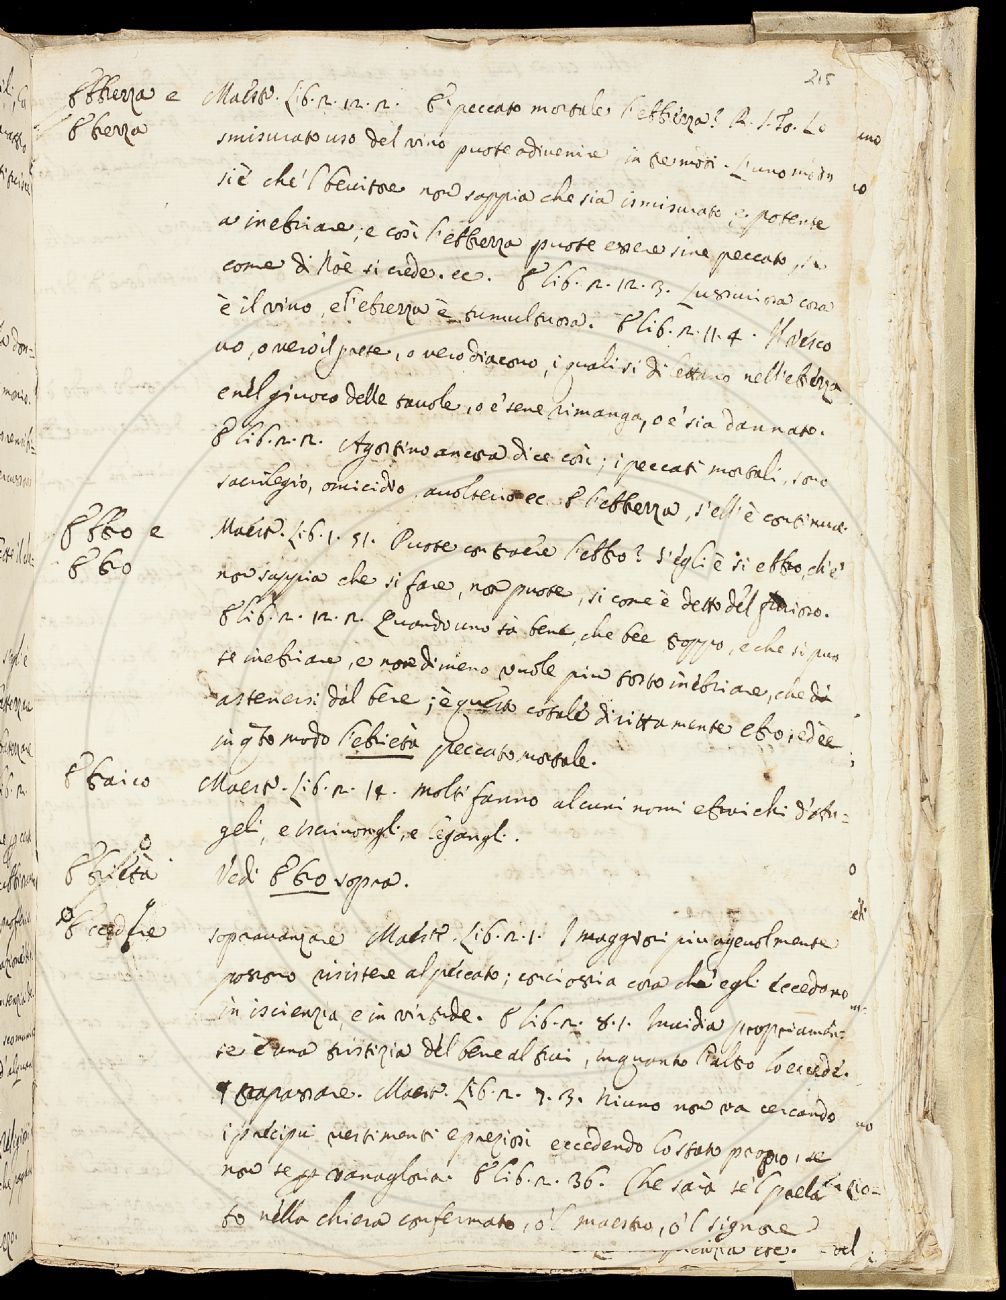 215
Ebbrezza e Maestr. Lib. 2. 12. 2. E' peccato mortale l'ebbrezza? R. S. To. Lo
Ebrezza smisurato uso del vino puote adivenire in tre modi. L'uno modo
si è che 'l bevitore non sappia che sia ismisurato, e potente
a inebriare; e così l'ebbrezza puote essere sine peccato, si
come di Noè si crede. ec. E lib. 2. 12. 3. Lussuriosa cosa
è il vino, e l'ebrezza è tumultuosa. E lib. 2. 11. 4. Il vesco
vo, o vero il prete, o vero diacono, i quali si dilettano nell'ebrezza
e nel giuoco delle tavole, o e' sene rimanga, o e' sia dannato.
E lib. 2. 2. Agostino ancora dice così; i peccati mortali, sono
sacrilegio, omicidio, avolterio ec. E l'ebbrezza, s'ell'è continua.
Ebbro e Maestr. Lib. 1. 51. Puote contraere l'ebbro? S'egli è si ebbro, ch'e'
Ebro non sappia che si fare, non puote, si come è detto del furioso.
E lib. 2. 12. 2. Quando uno sa bene, che bee troppo, e che si puo
te inebriare, e nondimeno vuole più tosto inebriare, che da
astenersi dal bere; è questo cotale dirittamente ebro, ed è
in qsto modo l'ebrietà peccato mortale.
Ebraico Maestr. Lib. 2. 14. Molti fanno alcuni nomi ebraichi d'agn-
geli, e iscrivongli, e légangli.
Ebrietà Vedi Ebro sopra.
Eccedere sopravanzare Maestr. Lib. 2. 1. I maggiori più agevolmente
possono risistere al peccato; conciossia cosa ch'egli eccedono
in iscienzia, e in virtude. E lib. 2. 8. 1. Invidia propriamen-
te è una tristizia del bene altrui, inquanto l'altro lo eccede.
¶ trapassare. Maestr. Lib. 2. 7. 3. Niuno non va cercando
i precipui vestimenti e preziosi eccedendo lo stato proprio, se
non se p vanagloria. E lib. 2. 36. Che sarà se 'l prela
to nella chiesa confermato, o 'l maestro, o 'l signore